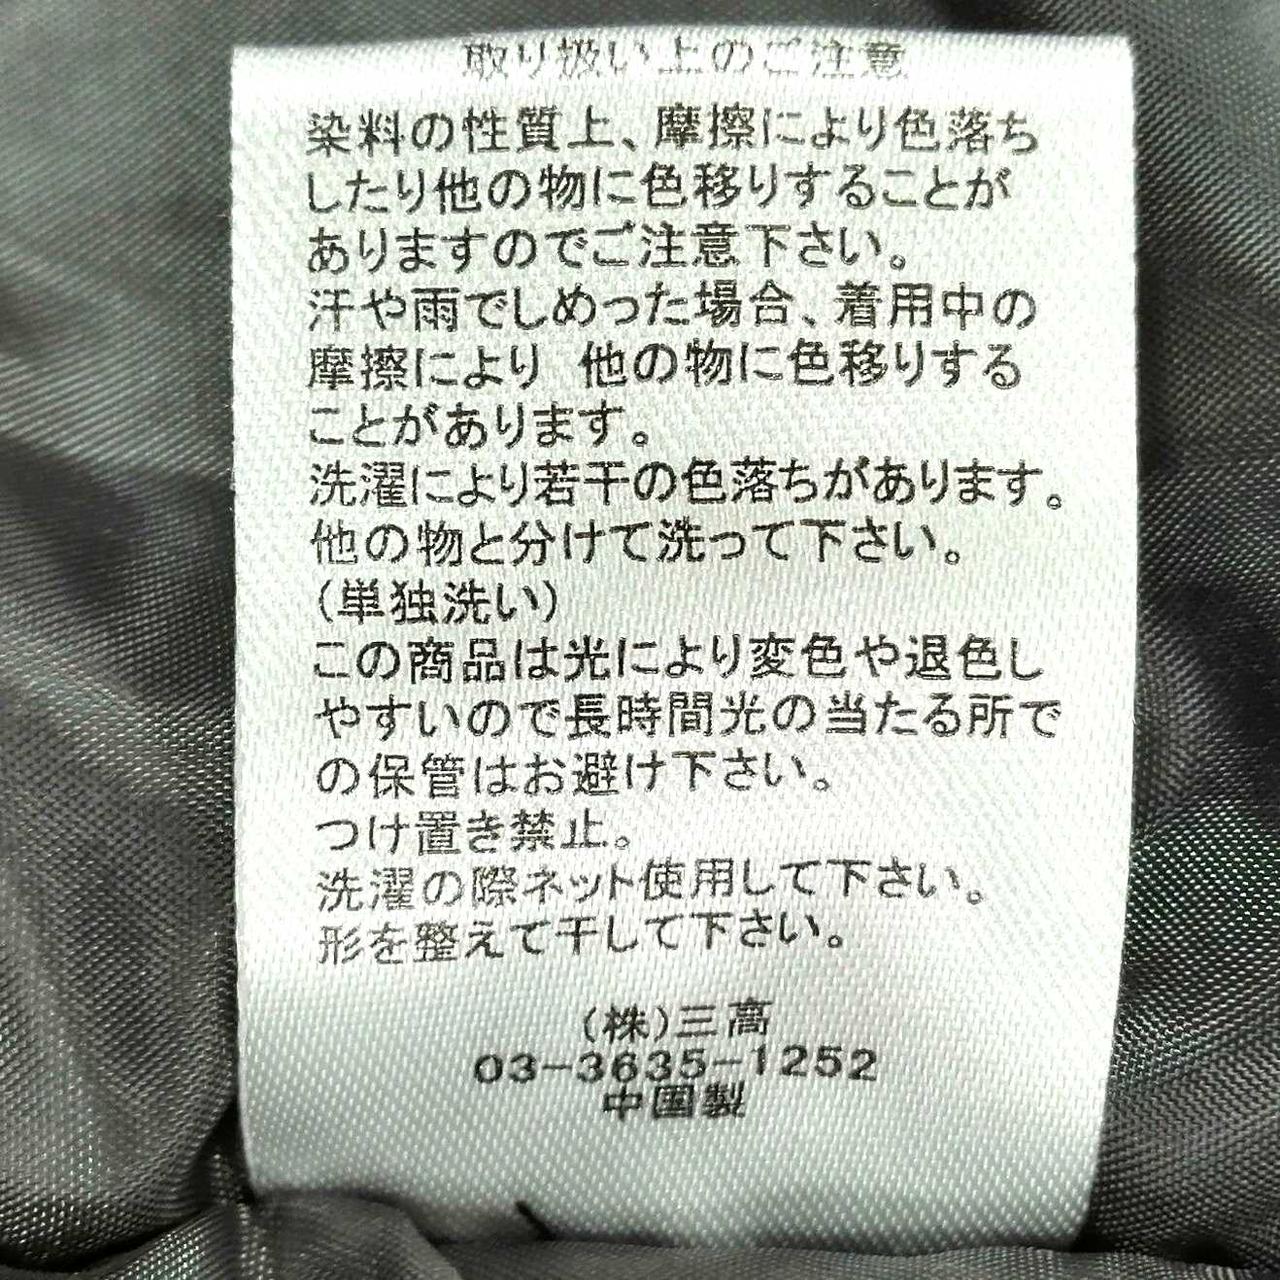 取り扱い上のご注意
染料の性質上、摩擦により色落ち
したり他の物に色移りすることが
ありますのでご注意下さい。
汗や雨でしめった場合、着用中の
摩擦により 他の物に色移りする
ことがあります。
洗濯により若干の色落ちがあります。
他の物と分けて洗って下さい。
(単独洗い)
この商品は光により変色や退色し
やすいので長時間光の当たる所で
の保管はお避け下さい。
つけ置き禁止。
洗濯の際ネット使用して下さい。
形を整えて干して下さい。
(株)三高
03-3635-1252
中国製